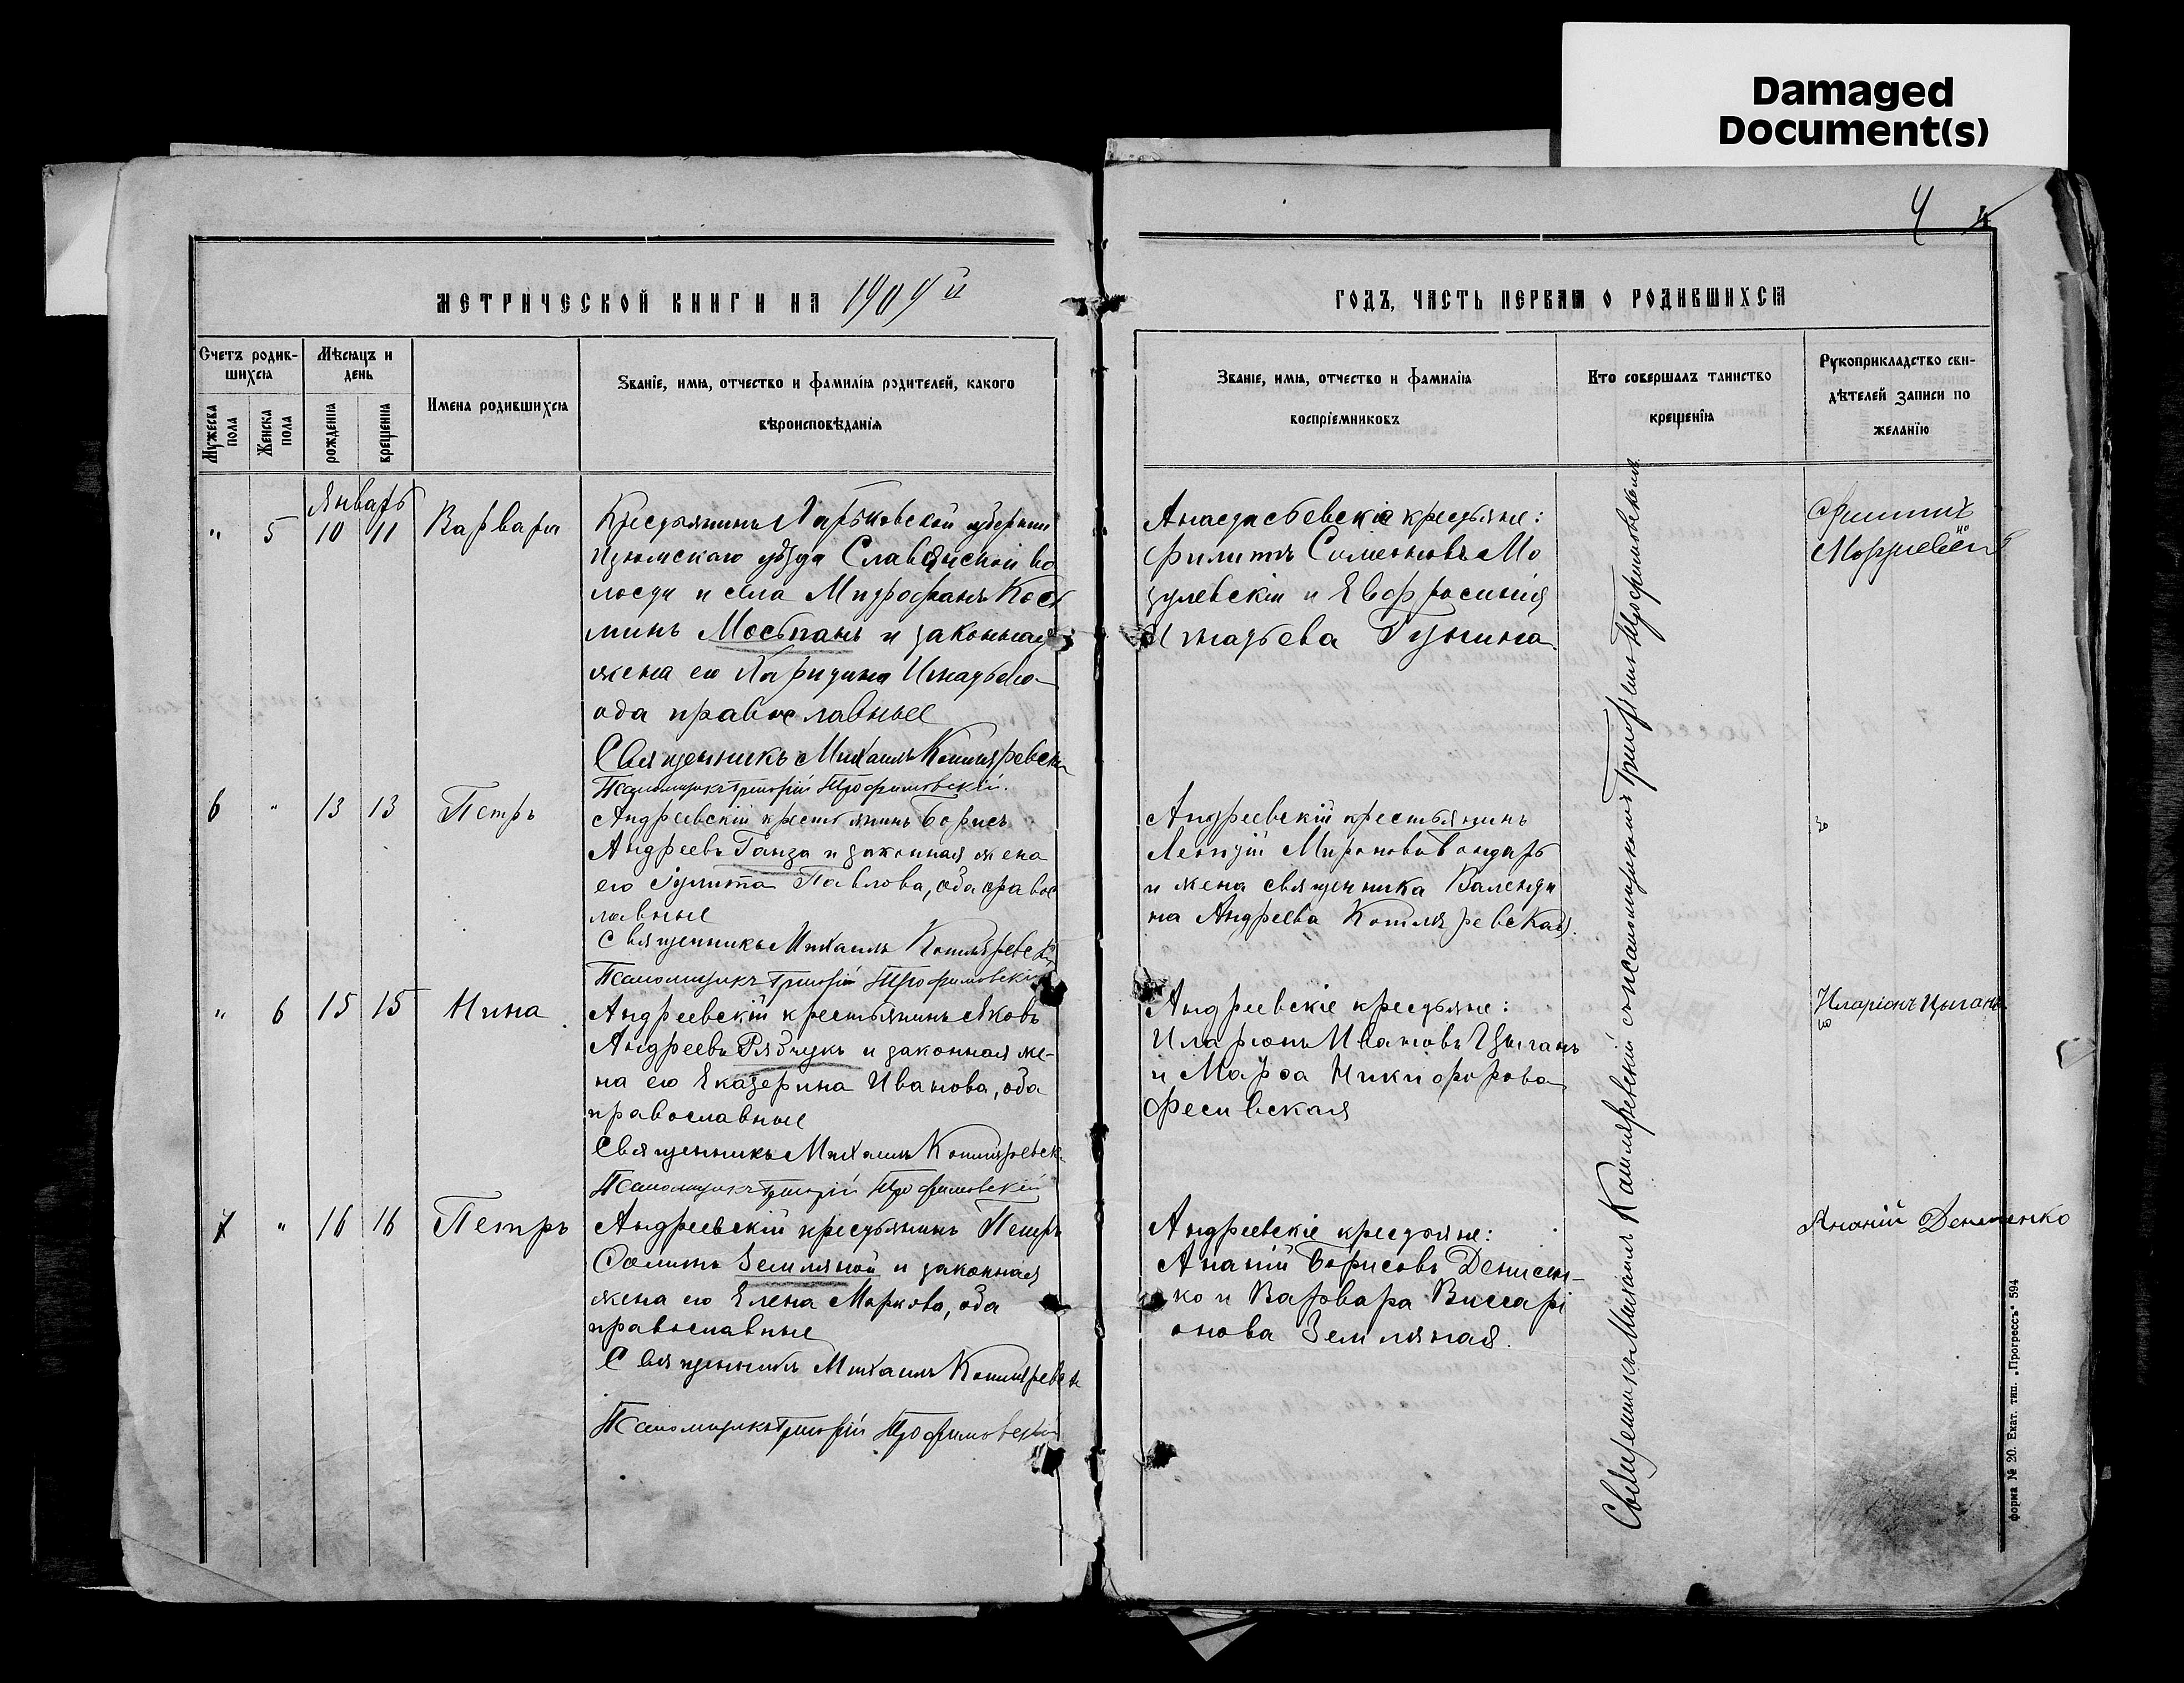 Damaged
Document(s)
4
МЕТРИЧЕСКОЙ КНИГИ НА 1904й
ГОДЪ, ЧАСТЬ ПЕРВАЯ О РОДИВШИХСЯ
Счетъ родив-
шихся
Мѣсяцъ и
день
Мужеска
пола
Женска
пола
рожденія
крещенія
Имена родившихся
Званіе, имя, отчество и фамилія родителей, какого
вѣроисповѣданія
Званіе, имя, отчество и фамилія
воспріемниковъ
Кто совершалъ таинство
крещенія
Рукоприкладство сви-
дѣтелей записи по
желанію
Январь
" 5 10 11 Варвара
Крестьянинъ Харьковской губерніи
Изюмскаго уѣзда Славянской во
лости и села Митрофанъ Кось
минъ Мосьпанъ и законная
жена его Харитина Игнатьева
оба православные
Священникъ Михаилъ Котляревскі
Псаломщикъ Григорій Трофимовскій.
Анастасьевскіе крестьяне:
Филиппъ Симеоновъ Мо
зулевскій и Евфросинія
Игнатьева Гунина
Филиппъ
6 " 13 13 Петръ
Андреевскій крестьянинъ Борисъ
Андреевъ Ганза и законная жена
его Іулита Павлова, оба правос
лавные
Священникъ Михаилъ Котляревскій
Псаломщикъ Григорій Трофимовскій
Андреевскій крестьянинъ
Леонтій Мироновъ Бондарь
и жена священника Валенти
на Андреева Котляревская.
" 6 15 15 Нина
Андреевскій крестьянинъ Яковъ
Андреевъ Рябчукъ и законная же-
на его Екатерина Иванова, оба
православные
Священникъ Михаилъ Котляревскі
Псаломщикъ Григорій Трофимовскій
Андреевскіе крестьяне:
Иларіонъ Ивановъ Цыганъ
и Марѳа Никифорова
Фесивская
Иларіонъ Цыганъ
7 " 16 16 Петръ
Андреевскій крестьянинъ Петръ
Ѳоминъ Земляной и законная
жена его Елена Маркова, оба
православные
Священникъ Михаилъ Котляревск
Псаломщикъ Григорій Трофимовскій
Андреевскіе крестьяне:
Ананій Борисовъ Денисен-
ко и Варвара Виссарі
онова Земляная.
Ананій Денисенко
Священникъ Михаилъ Котляревскій съ псаломщикомъ Григоріемъ Трофимовскимъ
форма № 20. Екат. тип. „Прогрессъ" 594